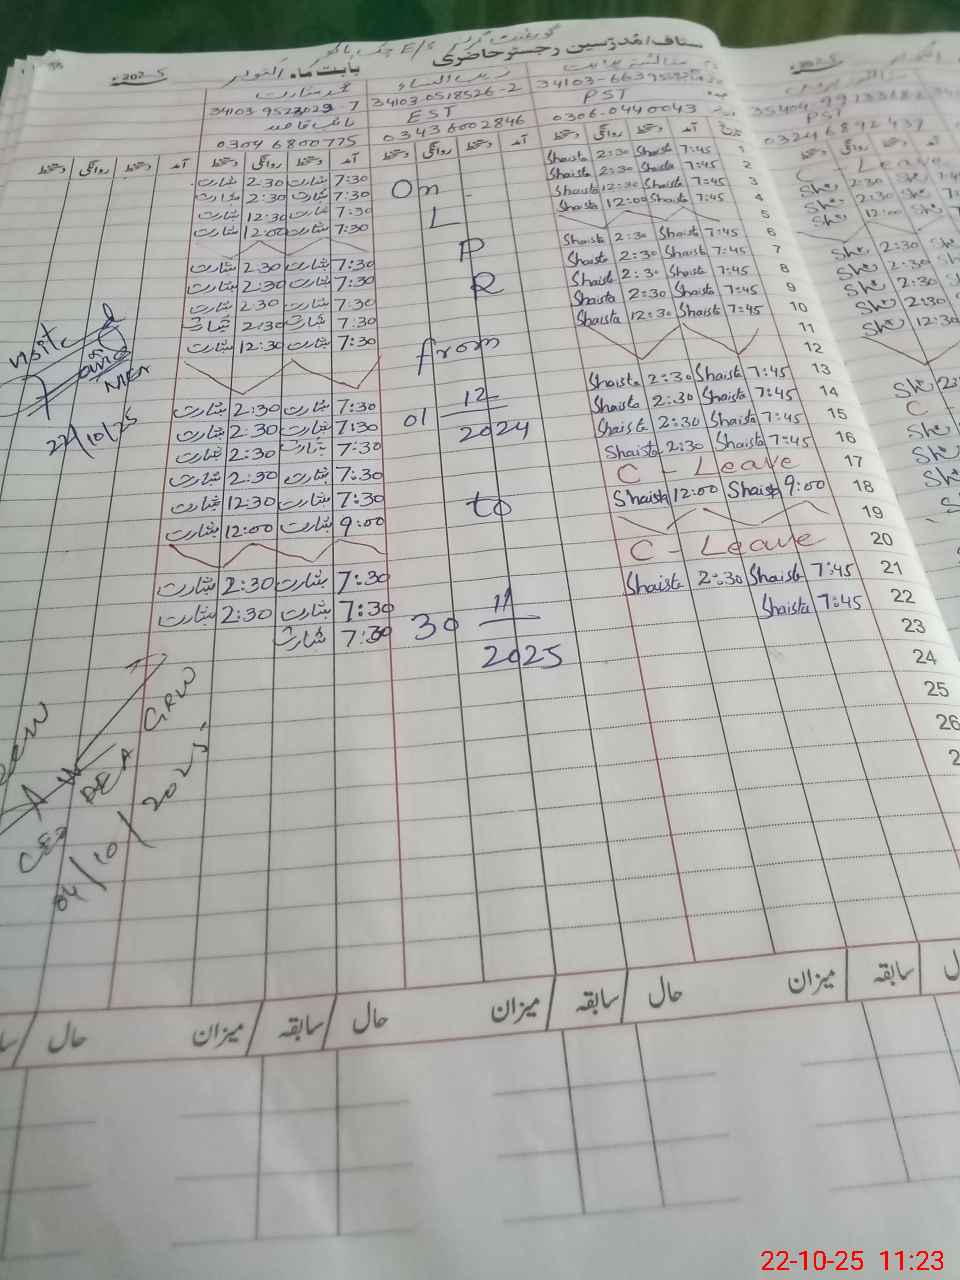 سٹاف/مدرسین رجسٹر حاضری
بابت ماہ اکتوبر 2025ء
34103-
PST
0306-0440043
34103-0518526-2
EST
03436002846
34103-9523029-7
نائب قاصد
03046800775
PST
03246892437
تاریخ آمد دستخط روانگی دستخط دستخط روانگی دستخط آمد دستخط روانگی دستخط آمد دستخط روانگی دستخط
1 7:45 Shaista 2:30 Shaista 7:30 بشارت 2:30 بشارت
2 7:45 Shaista 2:30 Shaista 7:30 بشارت 2:30 بشارت
3 7:45 Shaista 12:30 Shaista 7:30 بشارت 12:30 بشارت
4 7:45 Shaista 12:00 Shaista 7:30 بشارت 12:00 بشارت
5
6 7:45 Shaista 2:30 Shaista 7:30 بشارت 2:30 بشارت
7 7:45 Shaista 2:30 Shaista 7:30 بشارت 2:30 بشارت
8 7:45 Shaista 2:30 Shaista 7:30 بشارت 2:30 بشارت
9 7:45 Shaista 2:30 Shaista 7:30 بشارت 2:30 بشارت
10 7:45 Shaista 12:30 Shaista 7:30 بشارت 12:30 بشارت
11
12
13 7:45 Shaista 2:30 Shaista 7:30 بشارت 2:30 بشارت
14 7:45 Shaista 2:30 Shaista 7:30 بشارت 2:30 بشارت
15 7:45 Shaista 2:30 Shaista 7:30 بشارت 2:30 بشارت
16 7:45 Shaista 2:30 Shaista 7:30 بشارت 2:30 بشارت
17 C - Leave 7:30 بشارت 12:30 بشارت
18 9:00 Shaista 12:00 Shaista 9:00 بشارت 12:00 بشارت
19
20 C - Leave 7:30 بشارت 2:30 بشارت
21 7:45 Shaista 2:30 Shaista 7:30 بشارت 2:30 بشارت
22 7:45 Shaista 7:30 بشارت
23
24
25
26
2
On
L
P
R
from
01 12
2024
to
30 11
2025
C - Leave
She 2:30 She
She 2:30 She
She 12:00 She
She 2:30 She
She 2:30 She
She 2:30 She
She 2:30
She 12:30
She
C -
She
She
She
visited
MEA
22/10/25
CEO DEA GRW
04/10/2025
سابقہ میزان حال سابقہ میزان حال سابقہ میزان حال
22-10-25 11:23